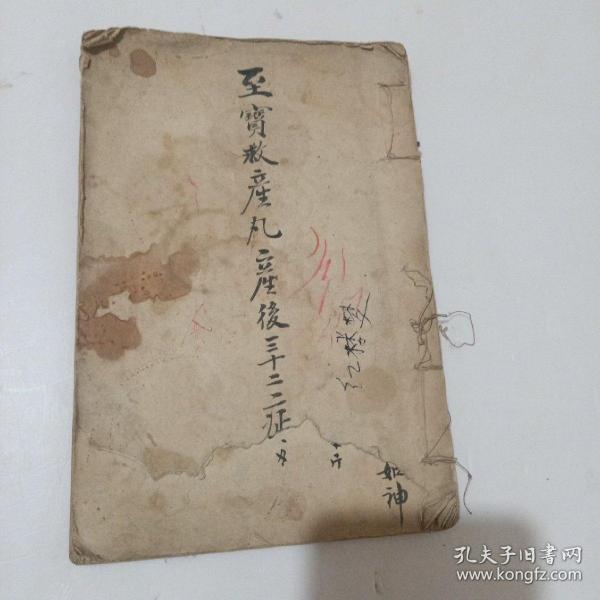 至寶救產丸產後三十二症
如神
孔夫子旧书网
www.kongfz.com